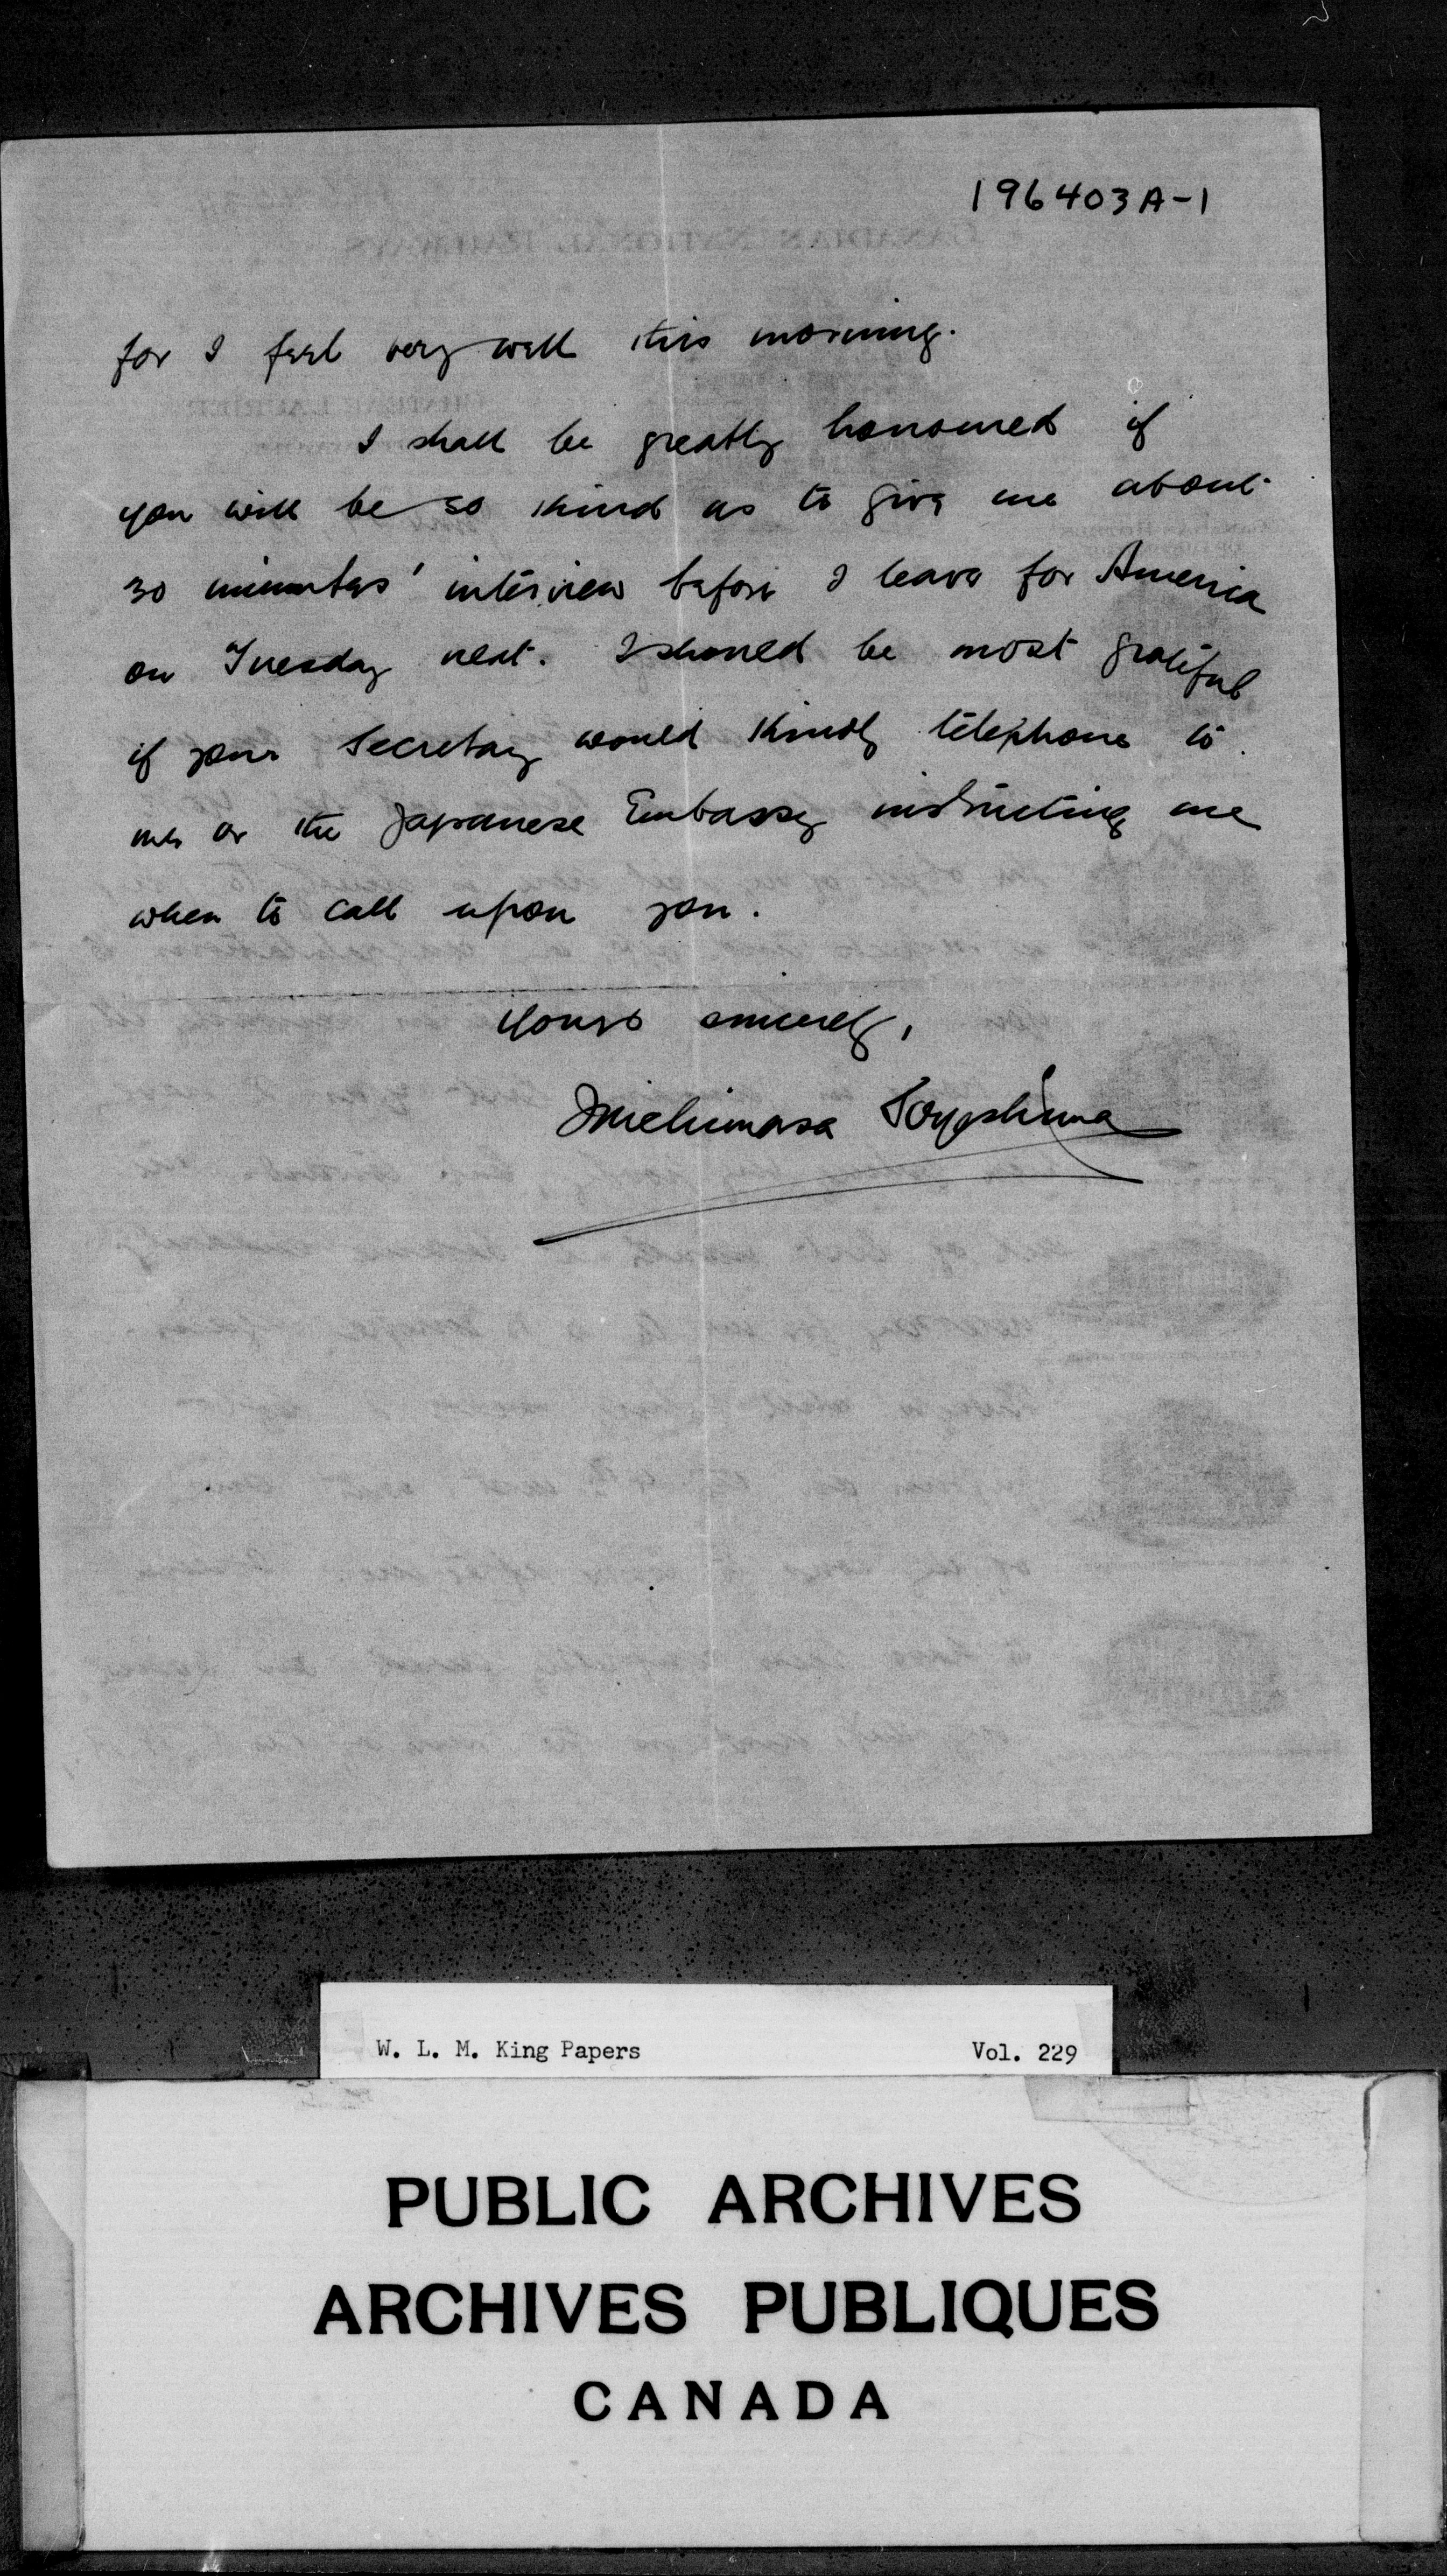 196403A-1
for I feel very well this morning.
I shall be greatly honoured if
you will be so kind as to give me about
30 minutes' interview before I leave for America
on Tuesday next. I should be most grateful
if your Secretary would kindly telephone to
me or the Japanese Embassy instructing me
when to call upon you.
Yours sincerely,
Michimasa Soyeshima
W. L. M. King Papers Vol. 229
PUBLIC ARCHIVES
ARCHIVES PUBLIQUES
CANADA